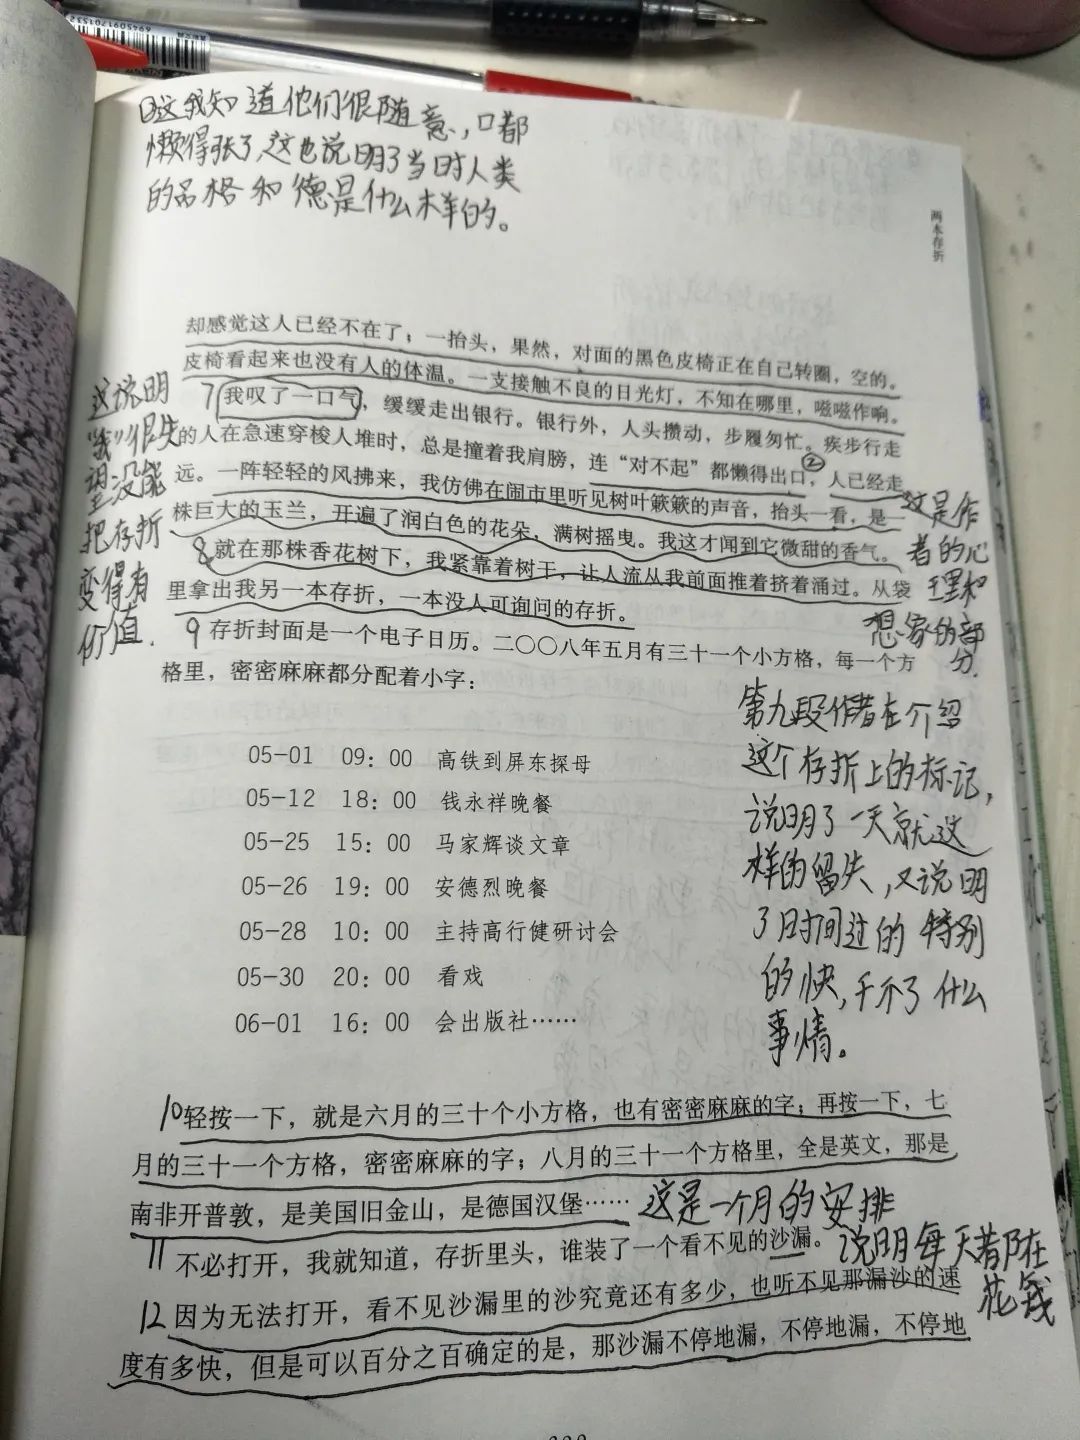 6945091701532
②这我知道他们很随意,口都
懒得张了,这也说明了当时人类
的品格和德是什么样的。
两本存折
却感觉这人已经不在了；一抬头，果然，对面的黑色皮椅正在自己转圈，空的。
皮椅看起来也没有人的体温。一支接触不良的日光灯，不知在哪里，嗞嗞作响。
7 我叹了一口气，缓缓走出银行。银行外，人头攒动，步履匆忙。疾步行走
的人在急速穿梭人堆时，总是撞着我肩膀，连“对不起”都懒得出口，②人已经走
远。一阵轻轻的风拂来，我仿佛在闹市里听见树叶簌簌的声音，抬头一看，是一
株巨大的玉兰，开遍了润白色的花朵，满树摇曳。我这才闻到它微甜的香气。
8 就在那株香花树下，我紧靠着树干，让人流从我前面推着挤着涌过。从袋
里拿出我另一本存折，一本没人可询问的存折。
这说明
“我”很失
望没能
把存折
变得有
价值.
这是作
者的心
理和
想象的部
分.
9 存折封面是一个电子日历。二〇〇八年五月有三十一个小方格，每一个方
格里，密密麻麻都分配着小字：
05-01 09：00 高铁到屏东探母
05-12 18：00 钱永祥晚餐
05-25 15：00 马家辉谈文章
05-26 19：00 安德烈晚餐
05-28 10：00 主持高行健研讨会
05-30 20：00 看戏
06-01 16：00 会出版社……
第九段作者在介绍
这个存折上的标记,
说明了一天就这
样的留失,又说明
了时间过的特别
的快,干不了什么
事情。
10 轻按一下，就是六月的三十个小方格，也有密密麻麻的字；再按一下，七
月的三十一个方格，密密麻麻的字；八月的三十一个方格里，全是英文，那是
南非开普敦，是美国旧金山，是德国汉堡…… 这是一个月的安排
11 不必打开，我就知道，存折里头，谁装了一个看不见的沙漏。 说明每天若都在
花钱
12 因为无法打开，看不见沙漏里的沙究竟还有多少，也听不见那漏沙的速
度有多快，但是可以百分之百确定的是，那沙漏不停地漏，不停地漏，不停地